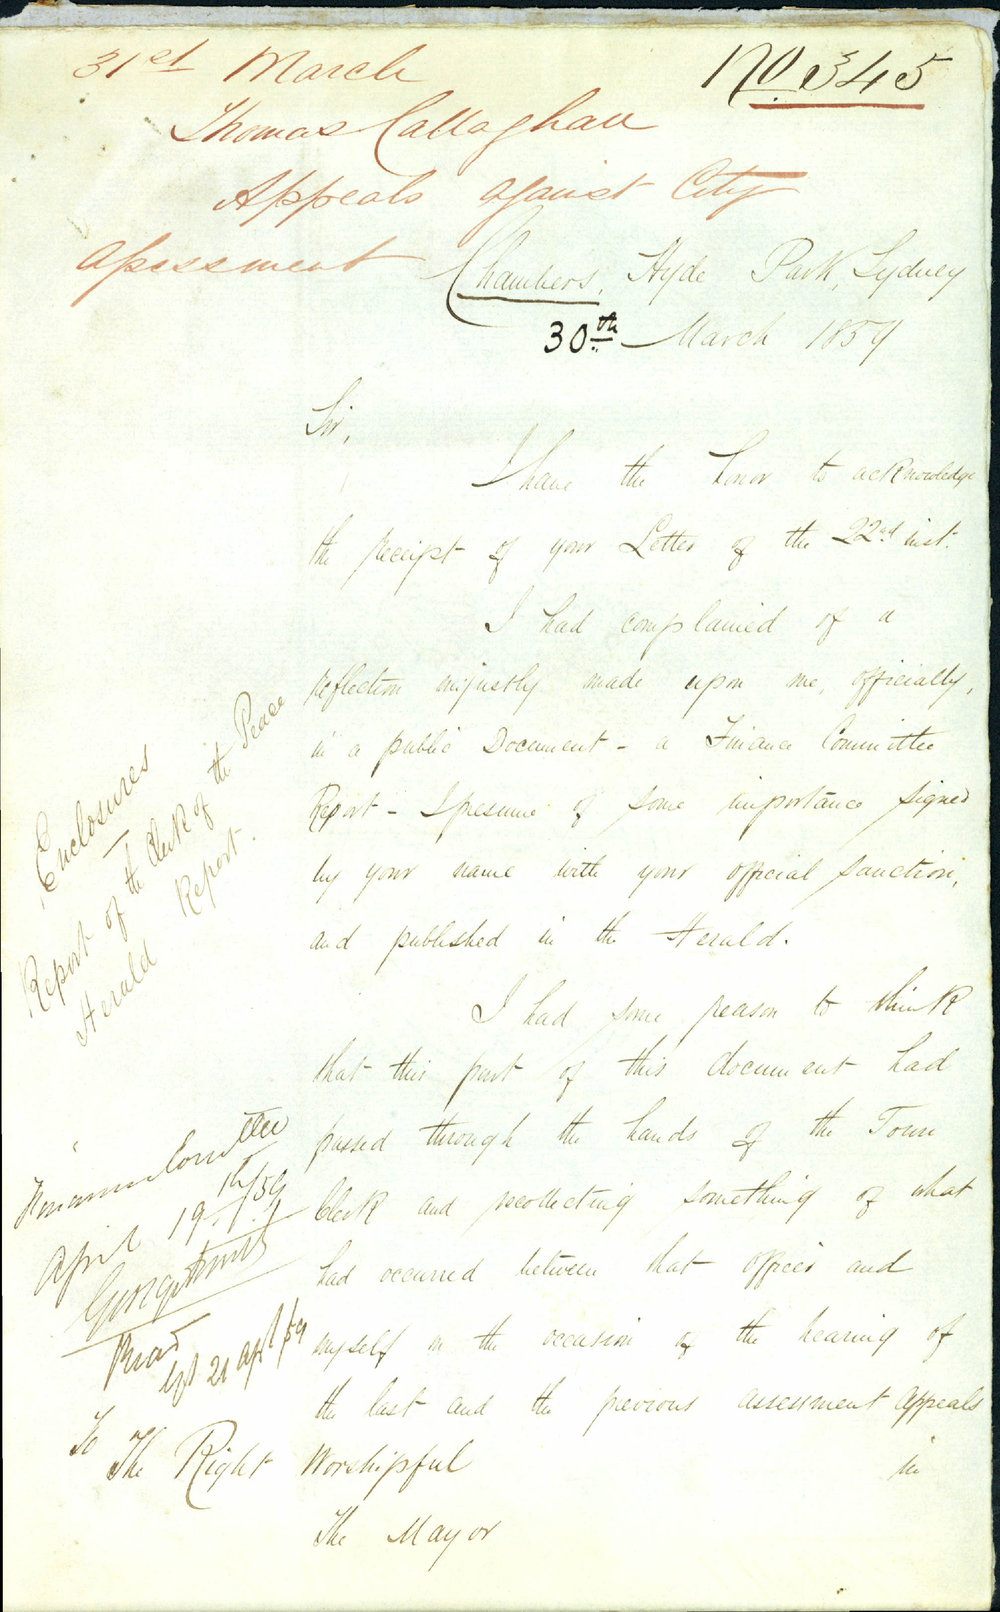 31st March
No 345
Thomas Callaghan
Appeals against City
Assessment
Chambers, Hyde Park, Sydney
30th March 1859
Sir,
I have the honor to acknowledge
the receipt of your Letter of the 22nd inst.
I had complained of a
reflection unjustly made upon me, officially,
in a public Document - a Finance Committee
Report - I presume of some importance signed
by your name with your official sanction,
and published in the Herald.
I had some reason to think
that this part of this document had
passed through the hands of the Town
Clerk and recollecting something of what
had occurred between that officer and
myself on the occasion of the hearing of
the last and the previous assessment appeals
in
Enclosures
Report of the Clerk of the Peace
Herald Report.
Finance Comttee
April 19th/59
George Smith
Read
21 Apl/59
To
The Right Worshipful
The Mayor